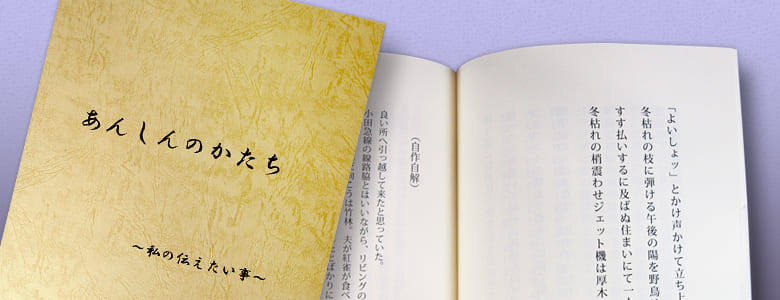 あんしんのかたち
～私の伝えたい事～
「よいしょッ」とかけ声かけて立ち上
冬枯れの枝に弾ける午後の陽を野鳥
すす払いするに及ばぬ住まいにて一
冬枯れの梢震わせジェット機は厚木
（自作自解）
良い所へ引っ越して来たと思っていた。
小田急線の線路脇とはいいながら、リビングの
こうは竹林。夫が紅雀が食べ
とばかりに